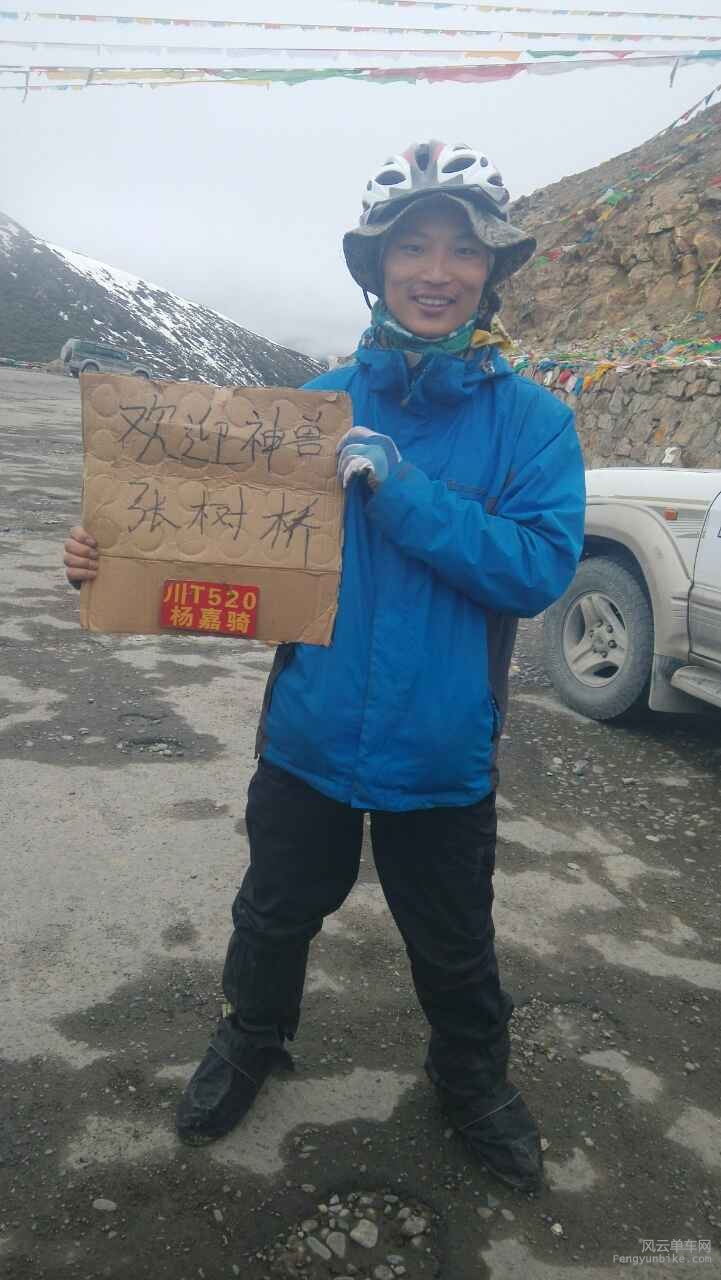 欢迎神兽
张树桥
川T520
杨嘉骑
风云单车网
Fengyunbike.com